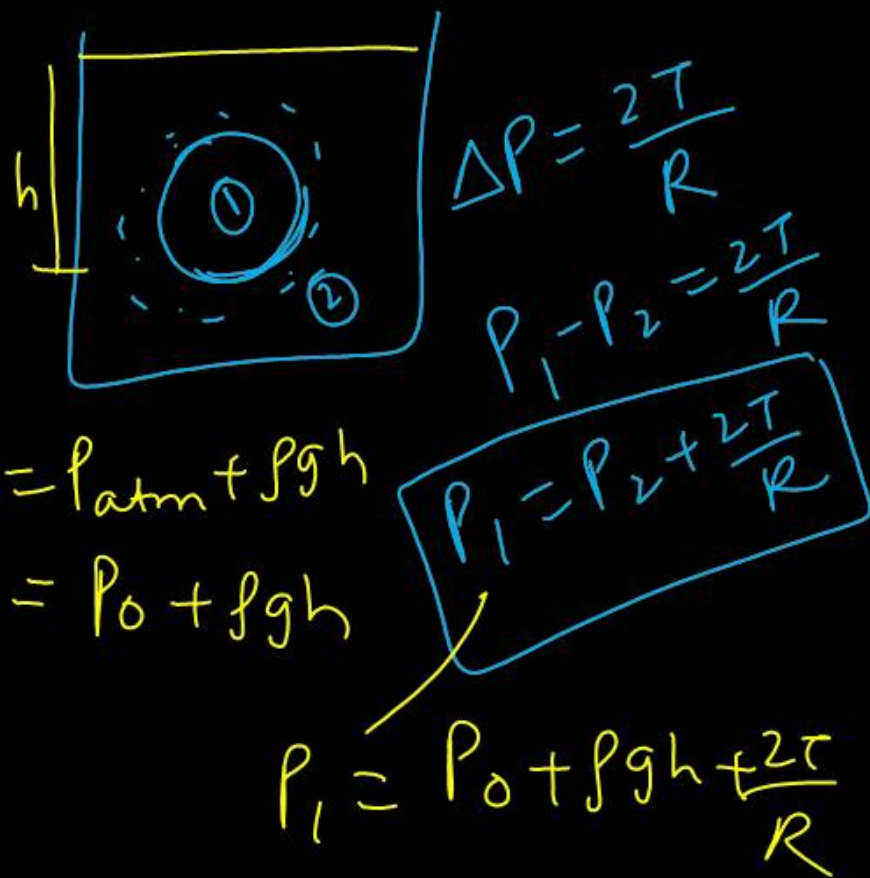 h
①
②
ΔP = 2T/R
P₁ - P₂ = 2T/R
P₁ = P₂ + 2T/R
= Patm + ρgh
= P₀ + ρgh
P₁ = P₀ + ρgh + 2T/R